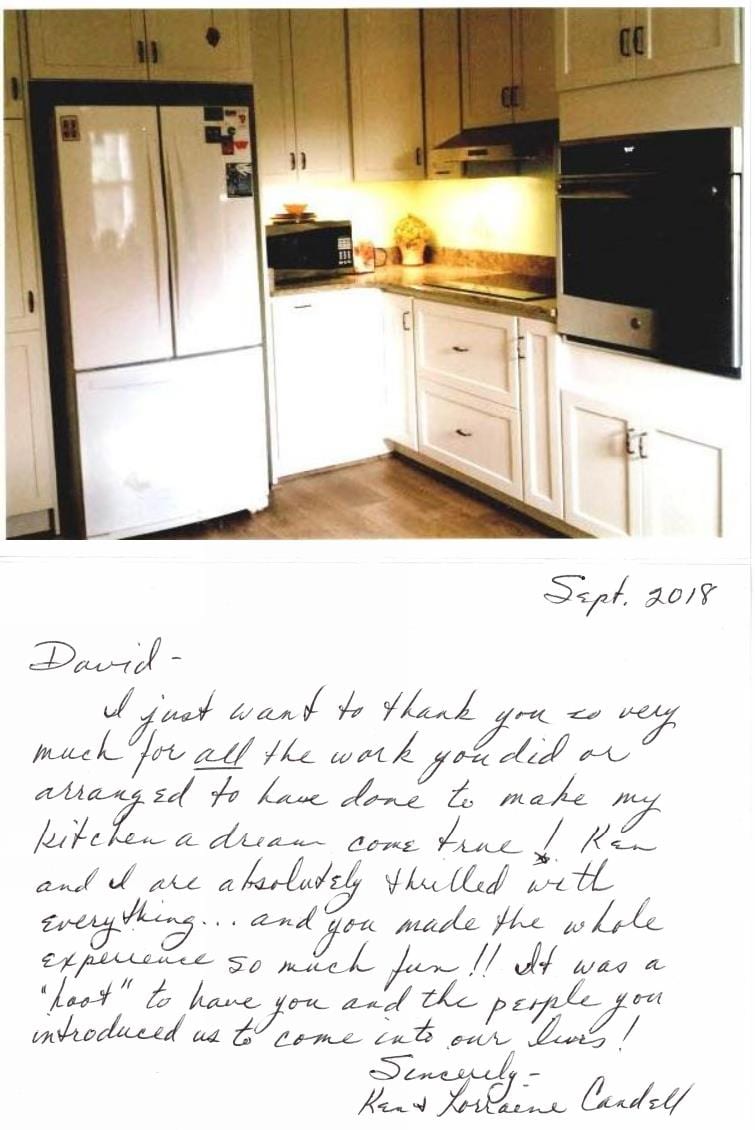 Sept. 2018
David-
I just want to thank you so very
much for all the work you did or
arranged to have done to make my
kitchen a dream come true! Ken
and I are absolutely thrilled with
everything... and you made the whole
experience so much fun!! It was a
"hoot" to have you and the people you
introduced us to come into our lives!
Sincerely-
Ken & Lorraine Candell